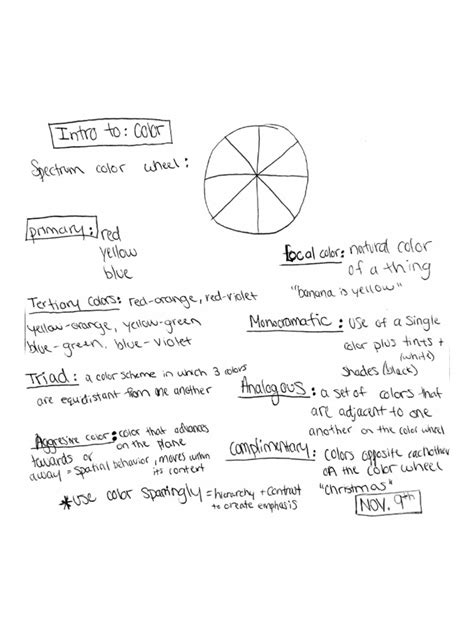 Intro to: Color
Spectrum color wheel:
primary: red
yellow
blue
local color: natural color
of a thing
"banana is yellow"
Tertiary colors: red-orange, red-violet
yellow-orange, yellow-green
blue-green, blue-violet
Monocromatic: use of a single
color plus tints +
(white)
shades (black)
Triad: a color scheme in which 3 colors
are equidistant from one another
Analogous: a set of colors that
are adjacent to one
another on the color wheel
Aggresive color: color that advances
towards or on the plane
away = spatial behavior, moves within
its context
Complimentary: colors opposite eachother
on the color wheel
"christmas"
*use color sparingly = hierarchy + contrast
to create emphasis
NOV. 9th